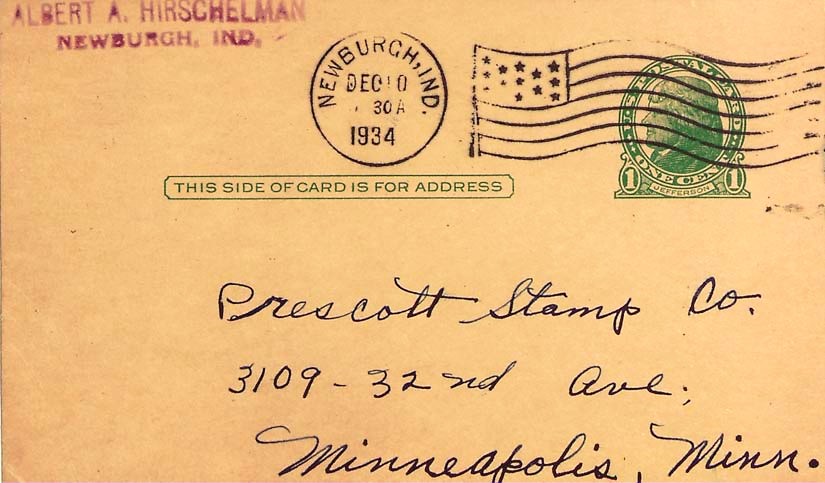 ALBERT A. HIRSCHELMAN
NEWBURGH, IND.
NEWBURGH, IND.
DEC 10
30 A
1934
U.S. POSTAL CARD
ONE CENT
1 JEFFERSON 1
THIS SIDE OF CARD IS FOR ADDRESS
Prescott Stamp Co.
3109 - 32nd Ave.
Minneapolis, Minn.